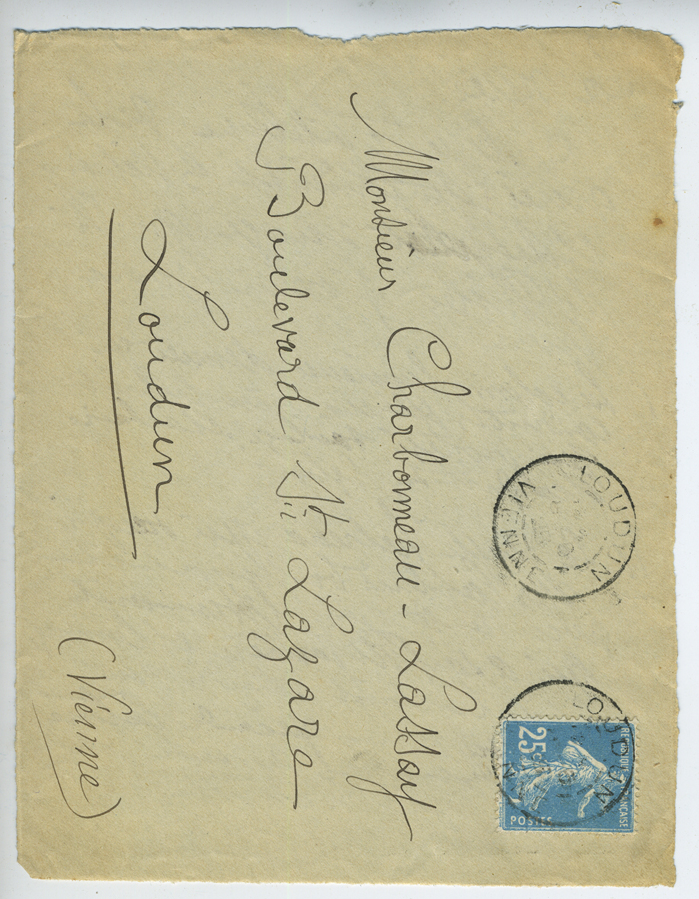 Monsieur Charbonneau-Lassay
Boulevard St Lazare
Loudun
(Vienne)
LOUDUN
VIENNE
LOUDUN
REPUBLIQUE FRANCAISE
25c
POSTES